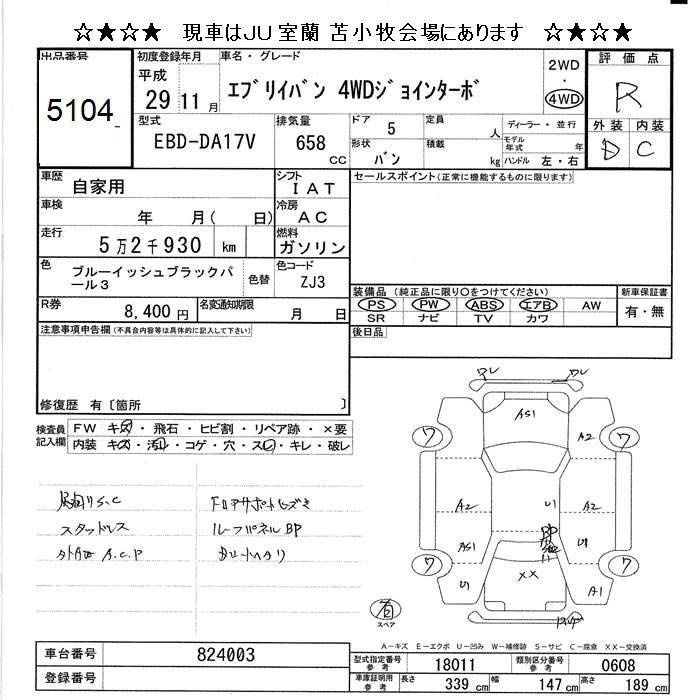 ☆★☆★　現車はJU室蘭 苫小牧会場にあります　☆★☆★
出品番号
5104
初度登録年月
平成
29 11 月
車名・グレード
エブリイバン 4WDジョインターボ
2WD
・
4WD
評価点
R
外装 内装
D C
型式
EBD-DA17V
排気量
658
cc
ドア
5
定員
人
形状
バン
積載
kg
ディーラー・並行
モデル年式
年
ハンドル 左・右
車歴
自家用
シフト
IAT
車検
年 月( 日)
冷房
AC
走行
5万2千930 km
燃料
ガソリン
色
ブルーイッシュブラックパール3
色替
色コード
ZJ3
R券
8,400円
名変通知期限
月 日
セールスポイント(正常に機能するものに限ります)
装備品 (純正品に限り○をつけてください)
新車保証書
PS PW ABS エアB AW
有・無
SR ナビ TV カワ
後日品
注意事項申告欄(不具合内容等は具体的に記入して下さい)
修復歴 有〔箇所 〕
検査員記入欄
FW キズ・飛石・ヒビ割・リペア跡・×要
内装 キズ・汚レ・コゲ・穴・スレ・キレ・破レ
S.C
スタッドレス
A.C.P
ルーフパネルBP
フロアサポートヒズミ
ワレ
ワレ
AS1
A2
ワ
ワ
A2
U1
A2
BP
AS1
U1
ワ
ワ
U1
XX
A1
スペア
A－キズ E－エクボ U－凹み W－補修跡 S－サビ C－腐食 XX－交換済
車台番号
824003
登録番号
型式指定番号
参考
18011
類別区分番号
参考
0608
車庫証明用
参考
長さ
339 cm
幅
147 cm
高さ
189 cm